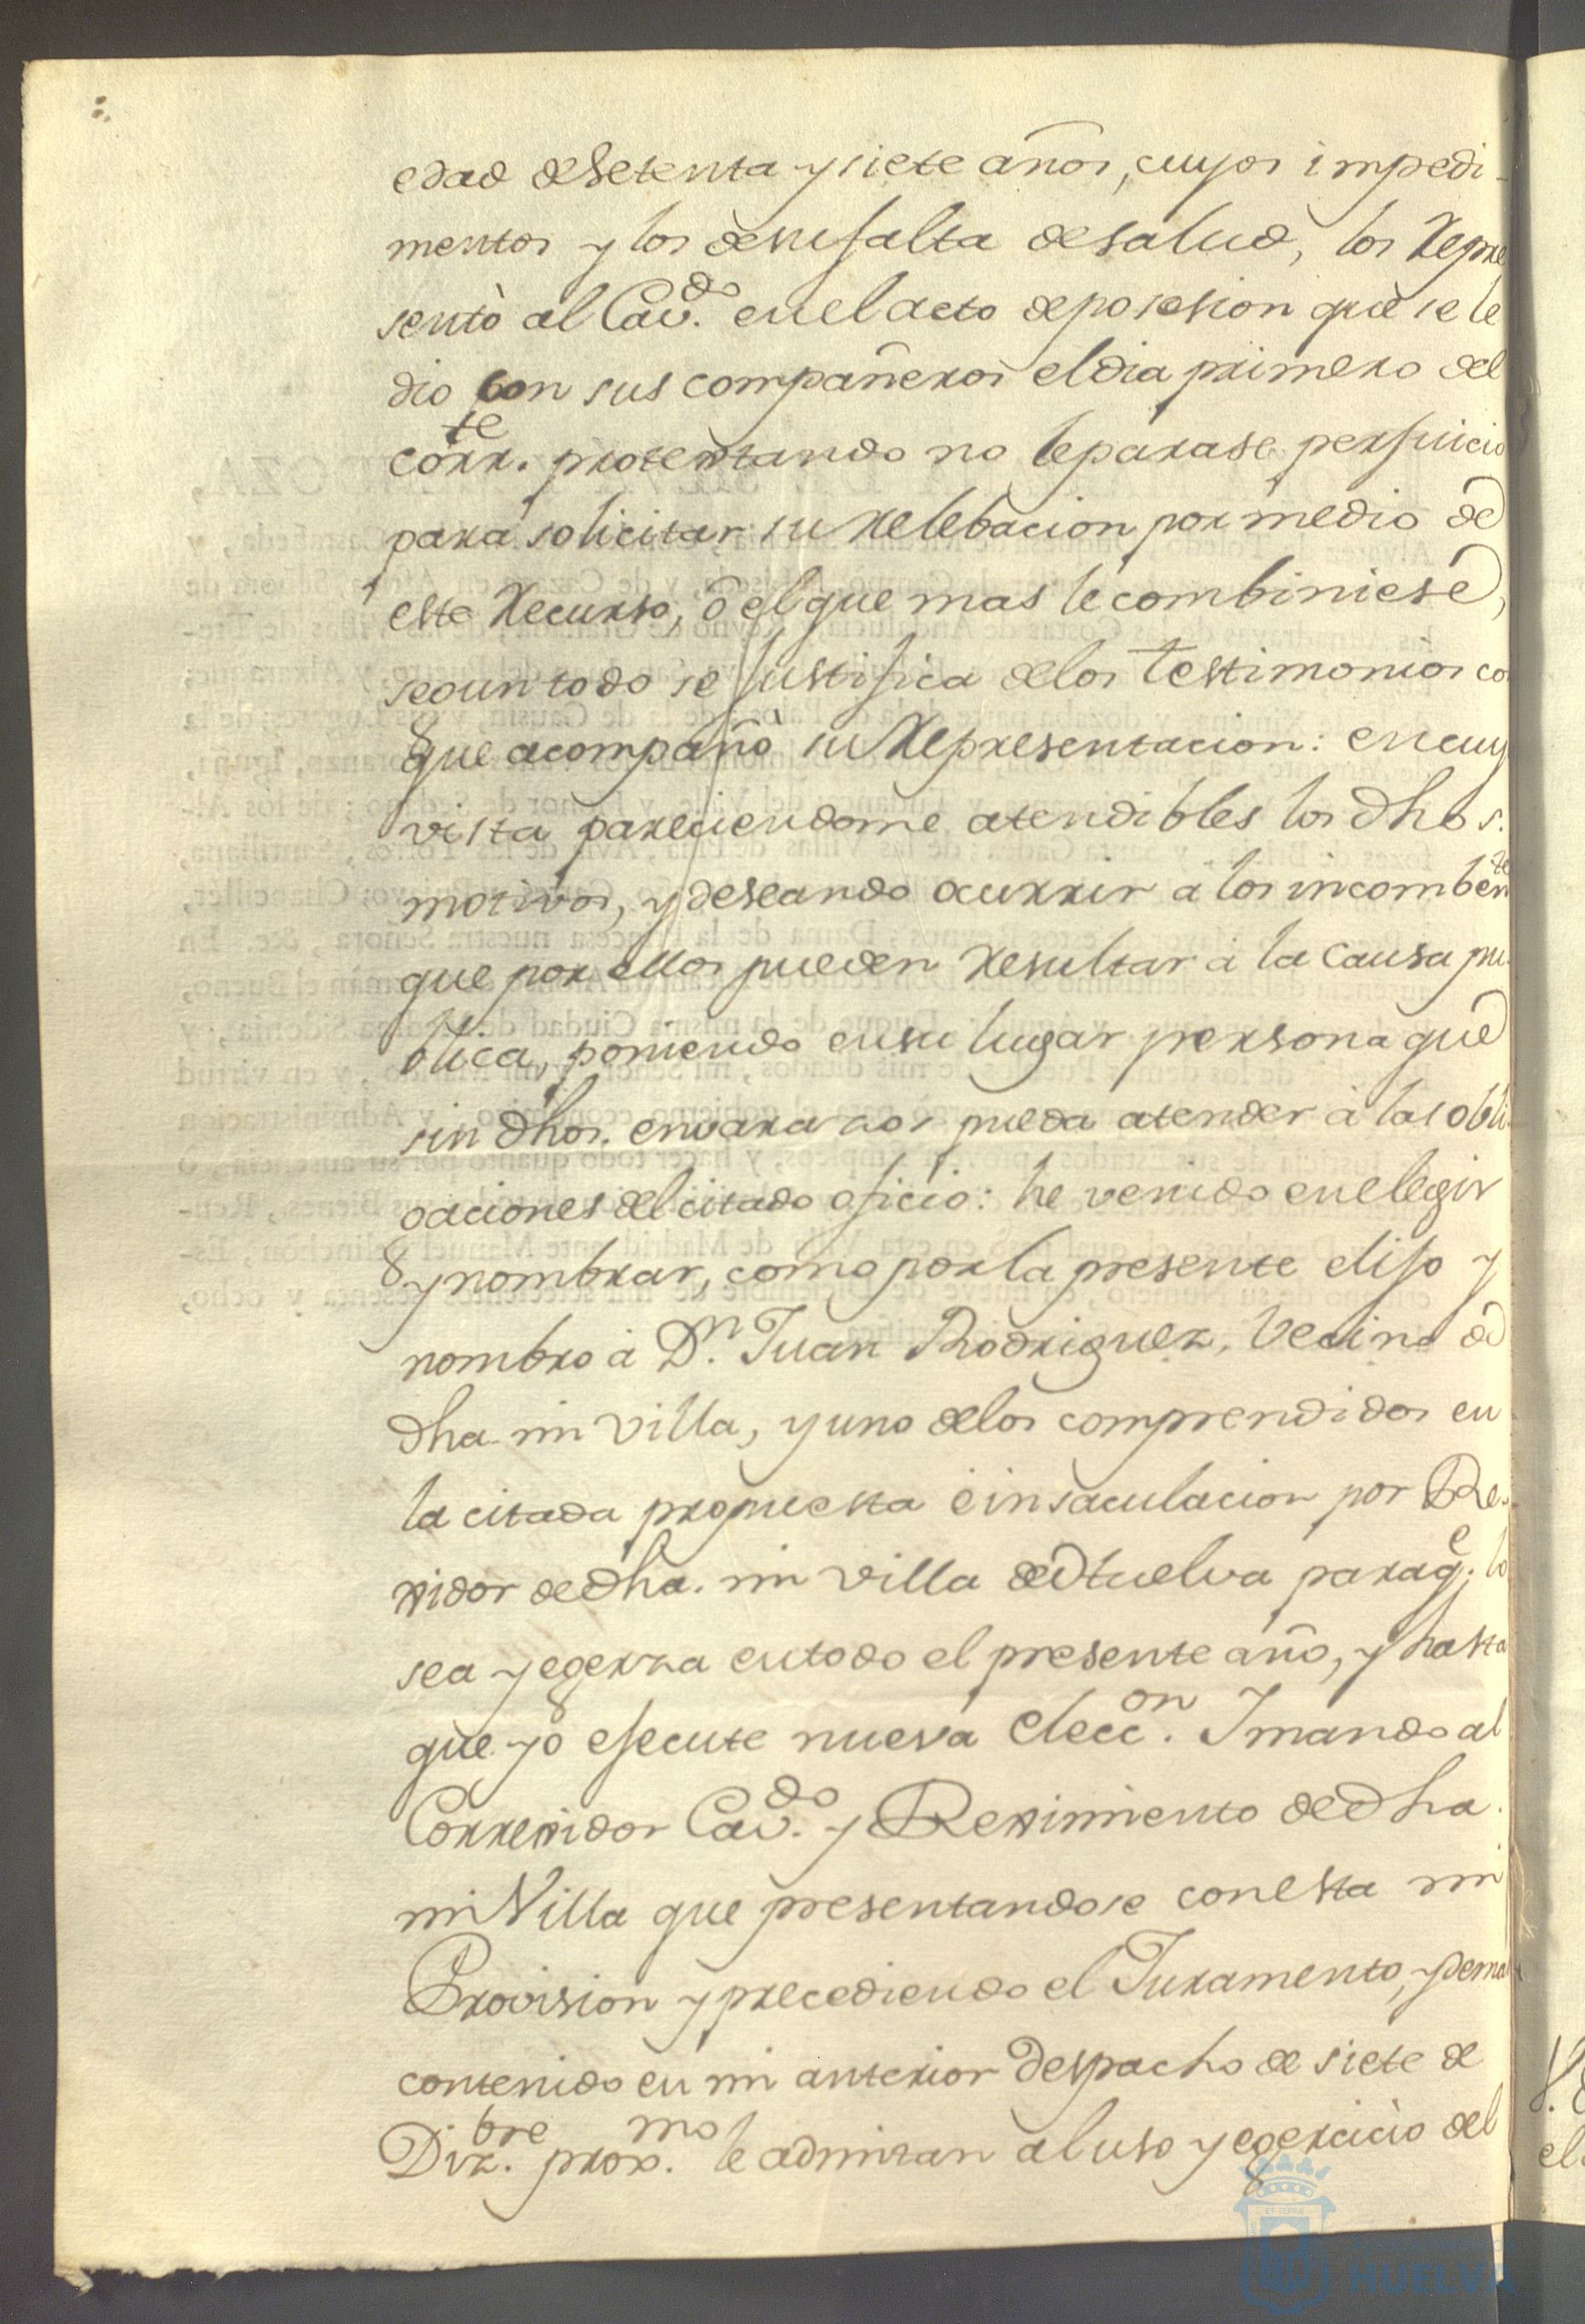 edad de Setenta y siete años, cuyos impedi-
mentos y los de su falta de salud, los Repre
sentò al Cav.do en el acto de posesion que se le
dio con sus compañeros el dia primero del
corr.te protextando no le parase perjuicio
para solicitar su relebacion por medio de
este Recurso, ò el que mas le combiniese,
segun todo se Justifica de los testimonios co
que acompañò su Representacion: en cuy
vista pareciendome atendibles los dhos.
motivos, y deseando ocurrir a los incomben.te
que por ellos pueden resultar à la Causa pu
blica, poniendo en su lugar persona que
sin dhos. envarazos pueda atender à las obli
gaciones del citado oficio: he venido en elegir
y nombrar, como por la presente elijo y
nombro à D.n Juan Rodriguez, Vecino de
dha mi Villa, y uno de los comprendidos en
la citada propuesta è insaculacion por Re-
gidor de dha. mi villa de Huelva para q.e lo
sea y egerza en todo el presente año, y hasta
que yo ejecute nueva elecc.on Y mando al
Corregidor Cav.do y Regimiento de dha.
mi Villa que presentandose con esta mi
Provision y precediendo el Juramento, y demas
contenido en mi anterior Despacho de siete de
Diz.bre prox.mo le admitan al uso y egercicio del
HUELVA